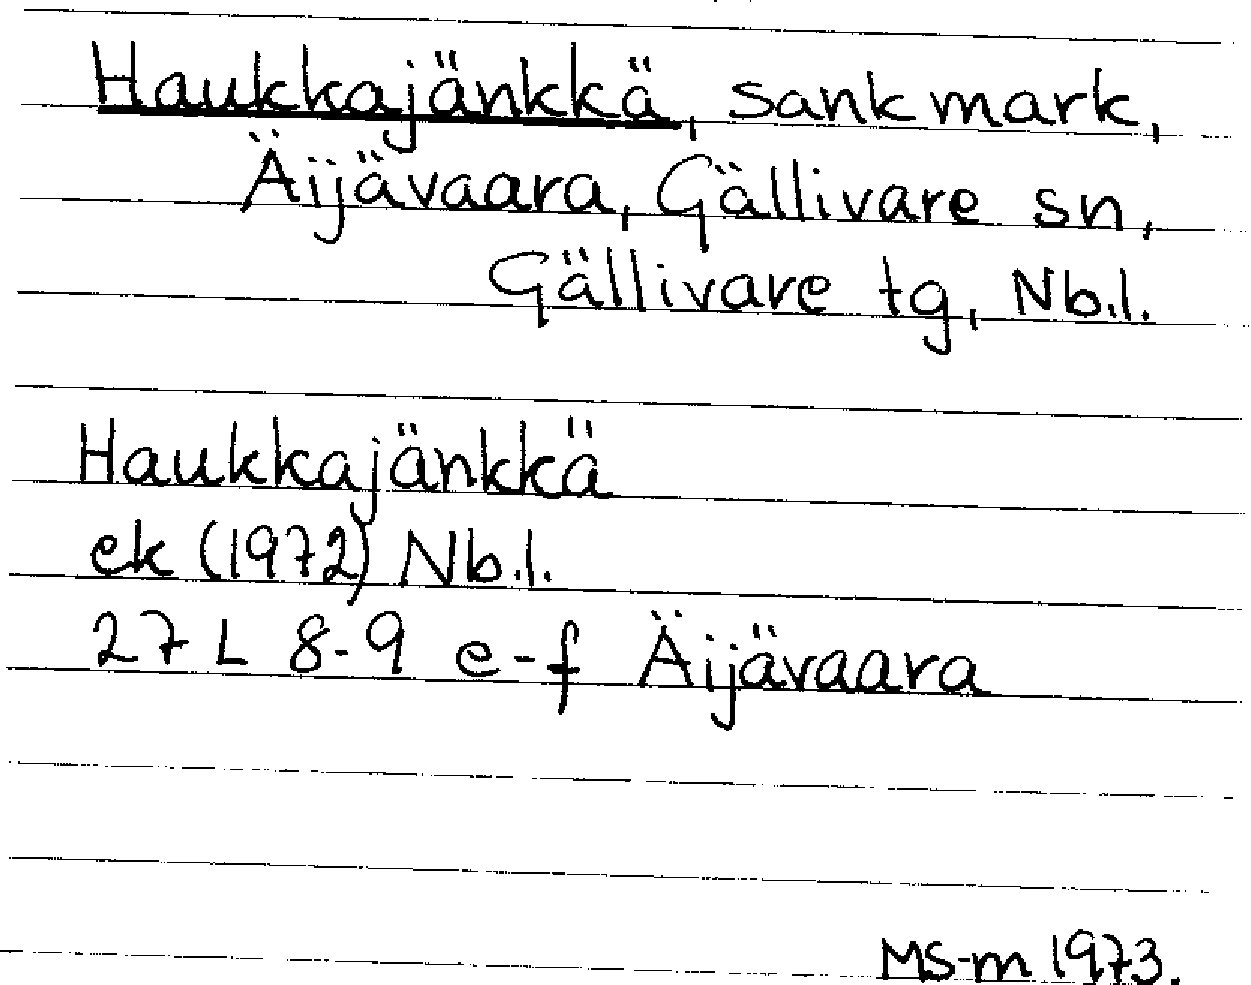 Haukkajänkkä, sankmark,
Äijävaara, Gällivare sn,
Gällivare tg, Nb.l.
Haukkajänkkä
ek (1972) Nb.l.
27 L 8-9 e-f Äijävaara
MS-m 1973.